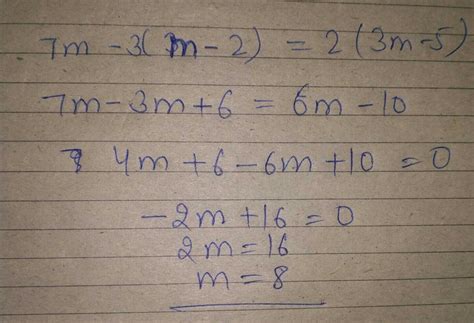 7m - 3(m - 2) = 2(3m - 5)
7m - 3m + 6 = 6m - 10
4m + 6 - 6m + 10 = 0
-2m + 16 = 0
2m = 16
m = 8